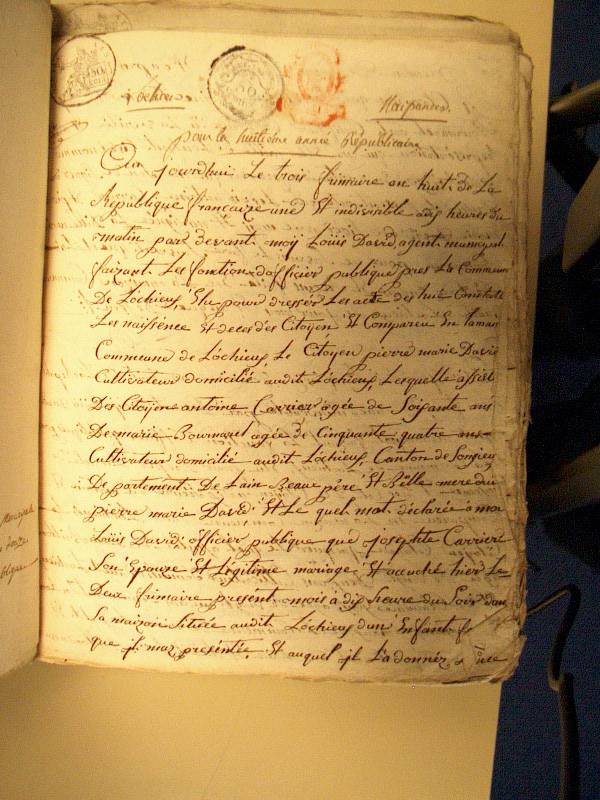 Lochieu Naissances
pour la huitième année Républicaine
Aujourdhui Le trois frimaire an huit de La
République française une Et indivisible a dis heures du
matin par devant moÿ Loüis David agent municipal
faizant Les fonction dofficier publique pres La Commune
De Lochieux, Elu pour dresser Les acte
Les naissence Et deces des Citoyen Et Compareu En La
Commune de Lochieux Le Citoyen pierre marie David
Cultivateur domicilié audit Lochieux Lesquelle assisté
Des Citoyen antoine Carrier agée de Soisante ans
De marie Bournarel agée de Cinquante quatre ans
Cultivateur domicilié audit Lochieux, Canton de Songieu
De partement De Lain Beaux père Et Belle mere du
pierre marie David Et Le quel mat déclarée a moi
Loüis David officier publique que josephte Carrier
Son Epouze Et Legitime mariage Et acouché hier Le
Deux frimaire present mois a dis heure du Soir dans
Sa maison Située audit Lochieux dun Enfant
que jl maz présentée Et auquel jl La donnéz